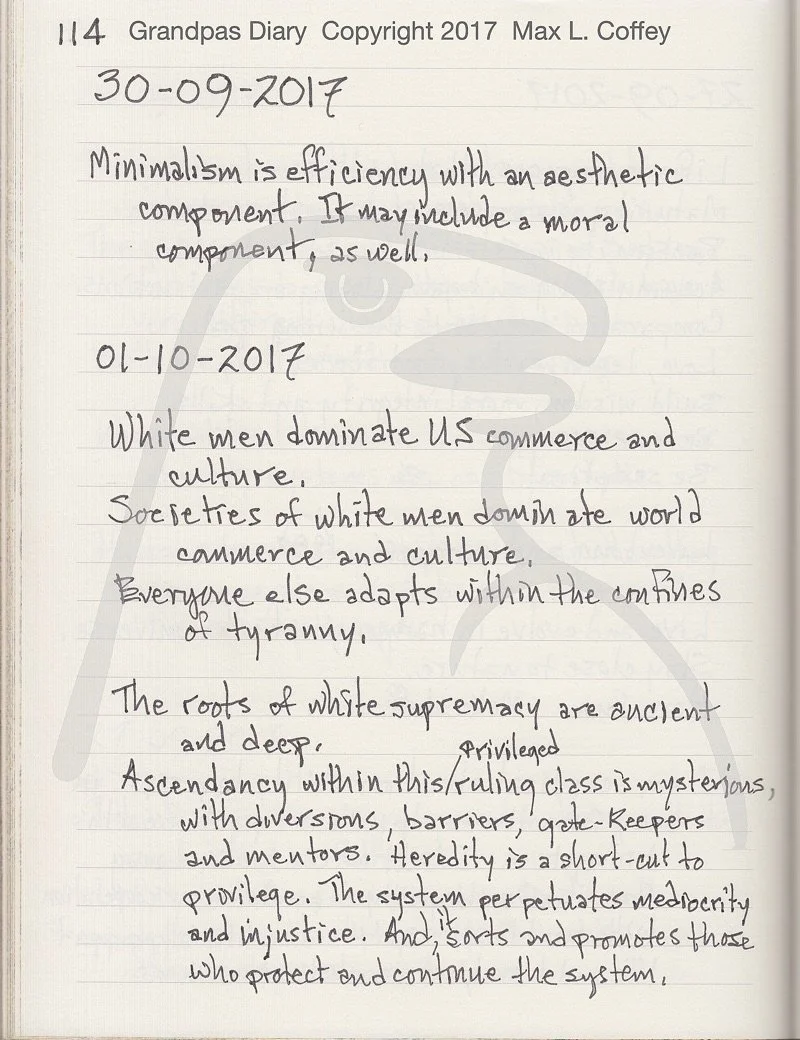 114 Grandpas Diary Copyright 2017 Max L. Coffey
30-09-2017
Minimalism is efficiency with an aesthetic
component. It may include a moral
component, as well.
01-10-2017
White men dominate US commerce and
culture.
Societies of white men dominate world
commerce and culture.
Everyone else adapts within the confines
of tyranny.
The roots of white supremacy are ancient
and deep.
privileged
Ascendancy within this/ruling class is mysterious,
with diversions, barriers, gate-keepers
and mentors. Heredity is a short-cut to
privilege. The system perpetuates mediocrity
and injustice. And, it sorts and promotes those
who protect and continue the system.